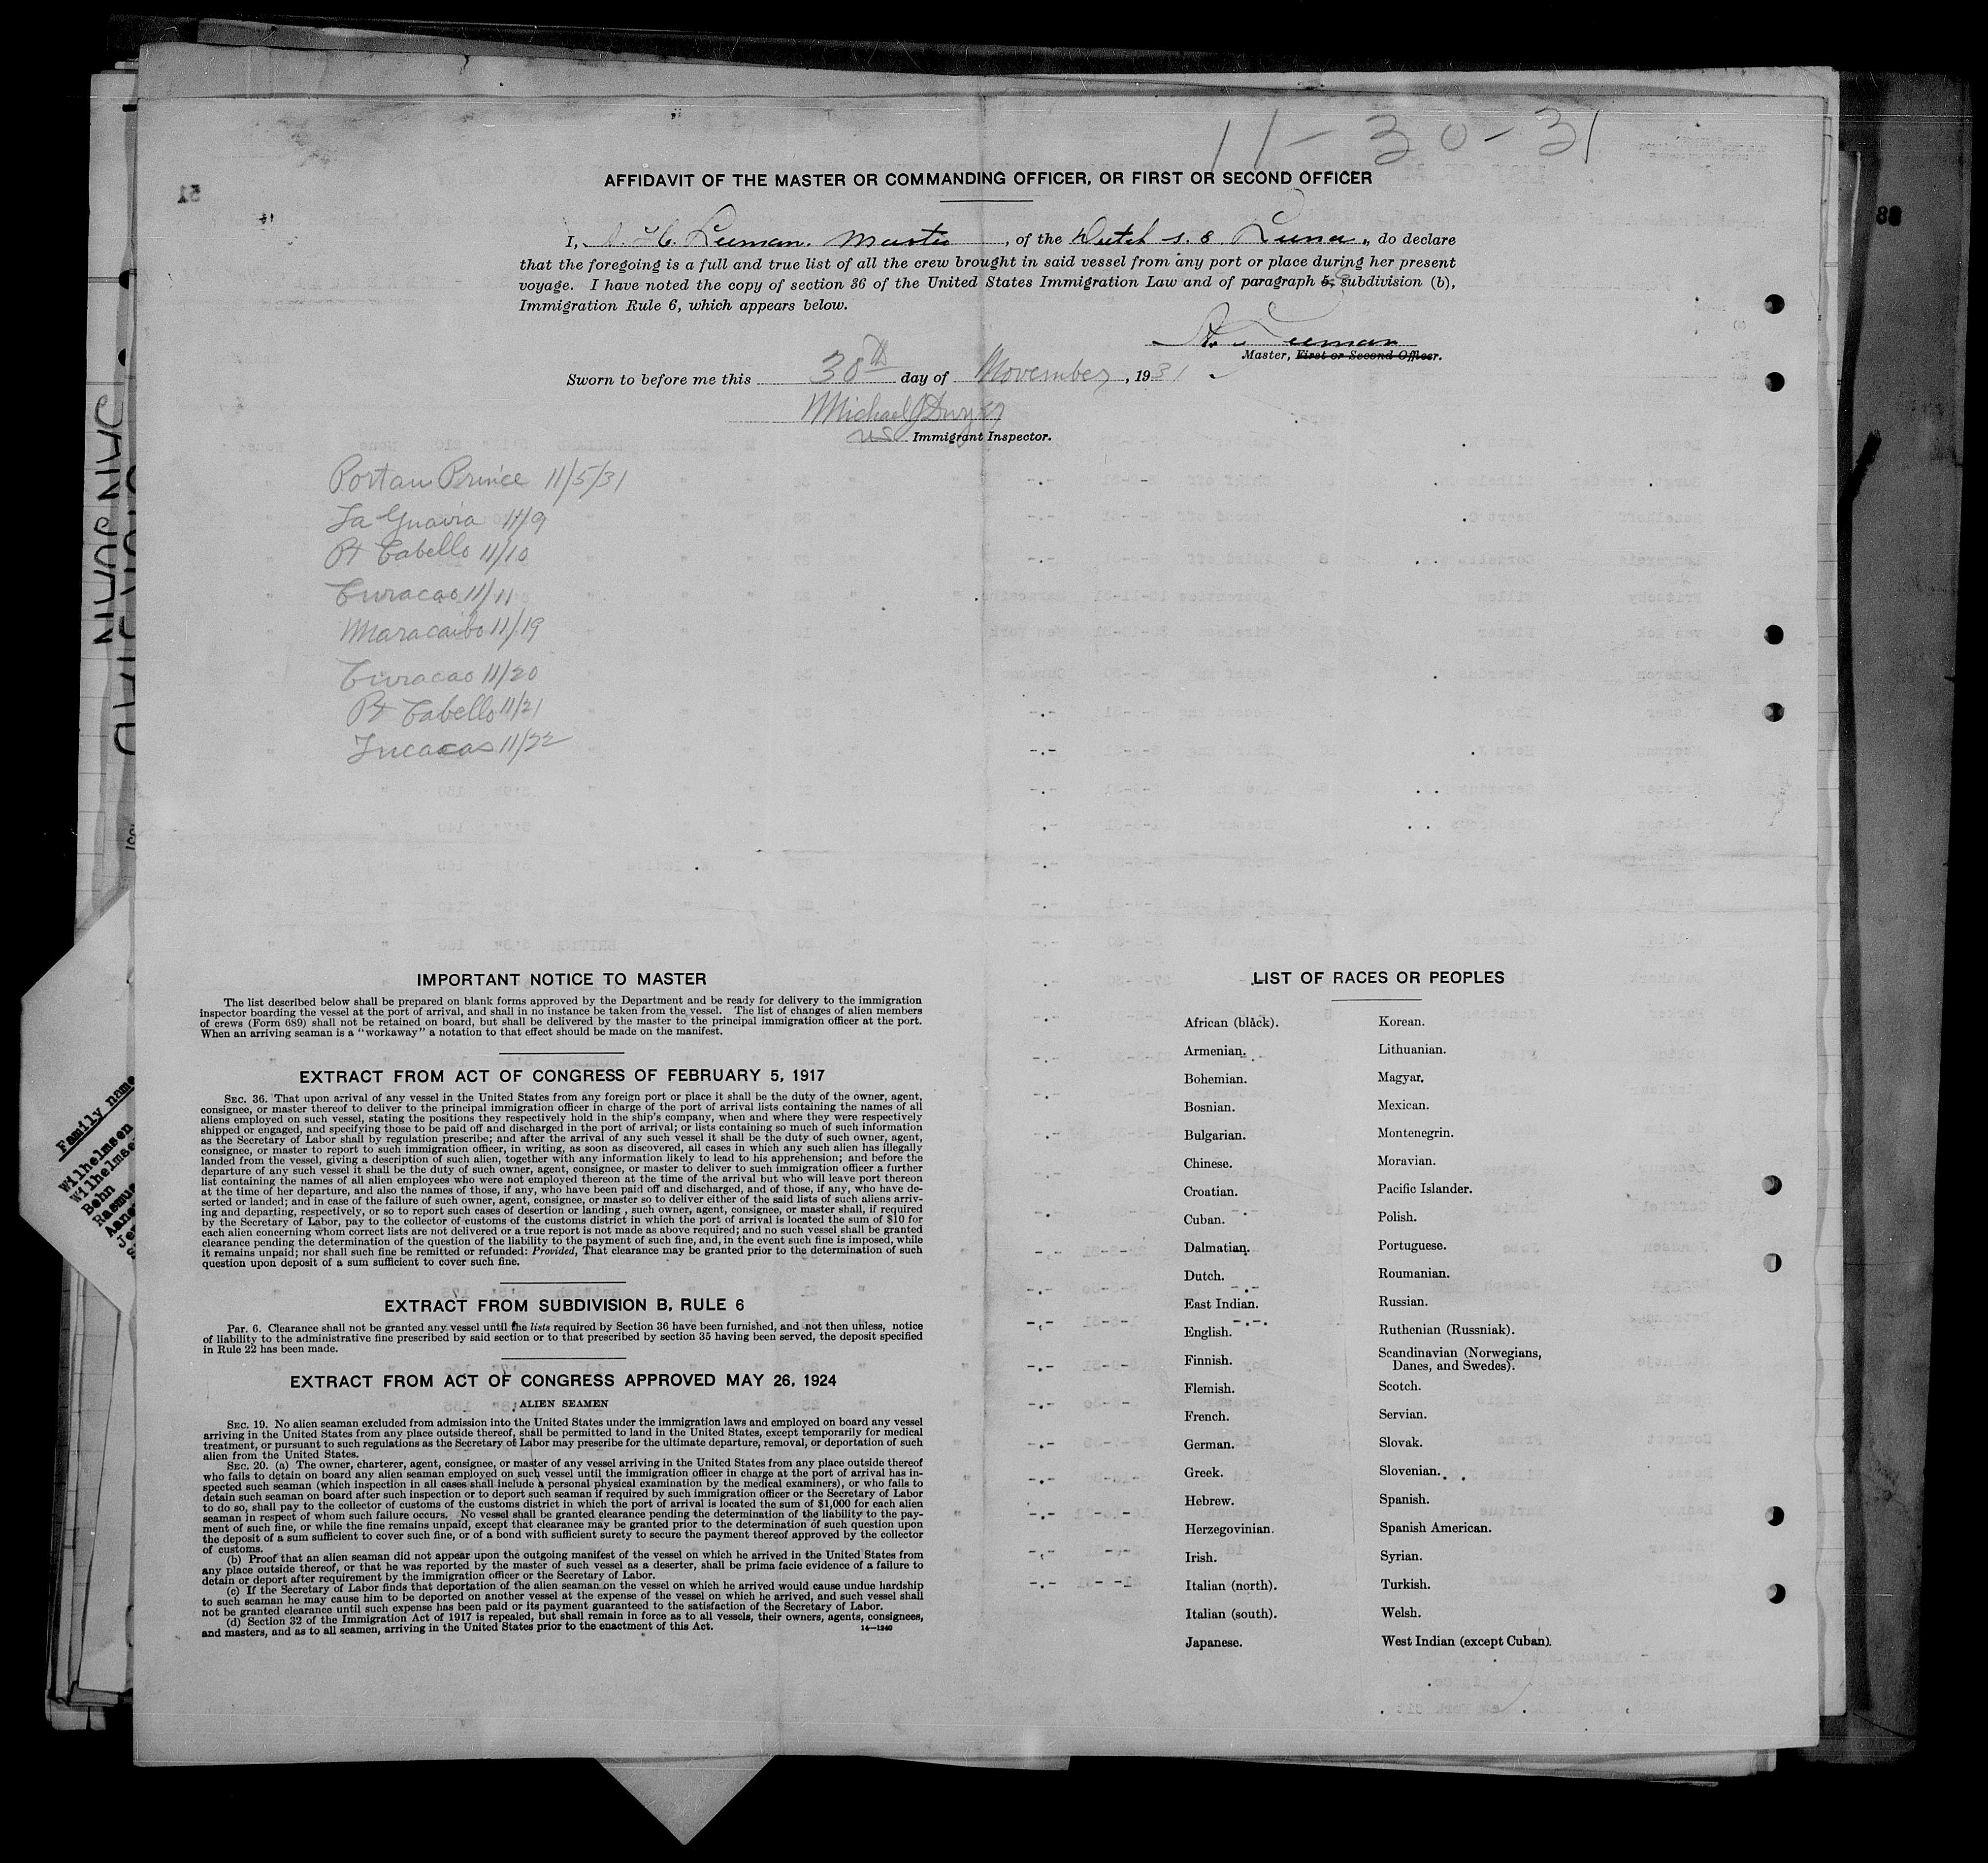 11-30-31
AFFIDAVIT OF THE MASTER OR COMMANDING OFFICER, OR FIRST OR SECOND OFFICER
I, Leeman. Master, of the Dutch s.s Luna, do declare
that the foregoing is a full and true list of all the crew brought in said vessel from any port or place during her present
voyage. I have noted the copy of section 36 of the United States Immigration Law and of paragraph 5, subdivision (b),
Immigration Rule 6, which appears below.
Leeman
Master, First or Second Officer.
Sworn to before me this 30th day of November, 1931
Michael J Dwyer
US Immigrant Inspector.
Port au Prince 11/5/31
La Guaira 11/9
Pt Cabello 11/10
Curacao 11/11
Maracaibo 11/19
Curacao 11/20
Pt Cabello 11/21
Tucacas 11/22
IMPORTANT NOTICE TO MASTER
The list described below shall be prepared on blank forms approved by the Department and be ready for delivery to the immigration
inspector boarding the vessel at the port of arrival, and shall in no instance be taken from the vessel. The list of changes of alien members
of crews (Form 689) shall not be retained on board, but shall be delivered by the master to the principal immigration officer at the port.
When an arriving seaman is a "workaway" a notation to that effect should be made on the manifest.
EXTRACT FROM ACT OF CONGRESS OF FEBRUARY 5, 1917
SEC. 36. That upon arrival of any vessel in the United States from any foreign port or place it shall be the duty of the owner, agent,
consignee, or master thereof to deliver to the principal immigration officer in charge of the port of arrival lists containing the names of all
aliens employed on such vessel, stating the positions they respectively hold in the ship's company, when and where they were respectively
shipped or engaged, and specifying those to be paid off and discharged in the port of arrival; or lists containing so much of such information
as the Secretary of Labor shall by regulation prescribe; and after the arrival of any such vessel it shall be the duty of such owner, agent,
consignee, or master to report to such immigration officer, in writing, as soon as discovered, all cases in which any such alien has illegally
landed from the vessel, giving a description of such alien, together with any information likely to lead to his apprehension; and before the
departure of any such vessel it shall be the duty of such owner, agent, consignee, or master to deliver to such immigration officer a further
list containing the names of all alien employees who were not employed thereon at the time of the arrival but who will leave port thereon
at the time of her departure, and also the names of those, if any, who have been paid off and discharged, and of those, if any, who have de-
serted or landed; and in case of the failure of such owner, agent, consignee, or master so to deliver either of the said lists of such aliens arriv-
ing and departing, respectively, or so to report such cases of desertion or landing , such owner, agent, consignee, or master shall, if required
by the Secretary of Labor, pay to the collector of customs of the customs district in which the port of arrival is located the sum of $10 for
each alien concerning whom correct lists are not delivered or a true report is not made as above required; and no such vessel shall be granted
clearance pending the determination of the question of the liability to the payment of such fine, and, in the event such fine is imposed, while
it remains unpaid; nor shall such fine be remitted or refunded: Provided, That clearance may be granted prior to the determination of such
question upon deposit of a sum sufficient to cover such fine.
EXTRACT FROM SUBDIVISION B, RULE 6
Par. 6. Clearance shall not be granted any vessel until the lists required by Section 36 have been furnished, and not then unless, notice
of liability to the administrative fine prescribed by said section or to that prescribed by section 35 having been served, the deposit specified
in Rule 22 has been made.
EXTRACT FROM ACT OF CONGRESS APPROVED MAY 26, 1924
ALIEN SEAMEN
SEC. 19. No alien seaman excluded from admission into the United States under the immigration laws and employed on board any vessel
arriving in the United States from any place outside thereof, shall be permitted to land in the United States, except temporarily for medical
treatment, or pursuant to such regulations as the Secretary of Labor may prescribe for the ultimate departure, removal, or deportation of such
alien from the United States.
SEC. 20. (a) The owner, charterer, agent, consignee, or master of any vessel arriving in the United States from any place outside thereof
who fails to detain on board any alien seaman employed on such vessel until the immigration officer in charge at the port of arrival has in-
spected such seaman (which inspection in all cases shall include a personal physical examination by the medical examiners), or who fails to
detain such seaman on board after such inspection or to deport such seaman if required by such immigration officer or the Secretary of Labor
to do so, shall pay to the collector of customs of the customs district in which the port of arrival is located the sum of $1,000 for each alien
seaman in respect of whom such failure occurs. No vessel shall be granted clearance pending the determination of the liability to the pay-
ment of such fine, or while the fine remains unpaid, except that clearance may be granted prior to the determination of such question upon
the deposit of a sum sufficient to cover such fine, or of a bond with sufficient surety to secure the payment thereof approved by the collector
of customs.
(b) Proof that an alien seaman did not appear upon the outgoing manifest of the vessel on which he arrived in the United States from
any place outside thereof, or that he was reported by the master of such vessel as a deserter, shall be prima facie evidence of a failure to
detain or deport after requirement by the immigration officer or the Secretary of Labor.
(c) If the Secretary of Labor finds that deportation of the alien seaman on the vessel on which he arrived would cause undue hardship
to such seaman he may cause him to be deported on another vessel at the expense of the vessel on which he arrived, and such vessel shall
not be granted clearance until such expense has been paid or its payment guaranteed to the satisfaction of the Secretary of Labor.
(d) Section 32 of the Immigration Act of 1917 is repealed, but shall remain in force as to all vessels, their owners, agents, consignees,
and masters, and as to all seamen, arriving in the United States prior to the enactment of this Act.
14—1240
LIST OF RACES OR PEOPLES
African (black).
Armenian.
Bohemian.
Bosnian.
Bulgarian.
Chinese.
Croatian.
Cuban.
Dalmatian.
Dutch.
East Indian.
English.
Finnish.
Flemish.
French.
German.
Greek.
Hebrew.
Herzegovinian.
Irish.
Italian (north).
Italian (south).
Japanese.
Korean.
Lithuanian.
Magyar.
Mexican.
Montenegrin.
Moravian.
Pacific Islander.
Polish.
Portuguese.
Roumanian.
Russian.
Ruthenian (Russniak).
Scandinavian (Norwegians,
Danes, and Swedes).
Scotch.
Servian.
Slovak.
Slovenian.
Spanish.
Spanish American.
Syrian.
Turkish.
Welsh.
West Indian (except Cuban).
Family name
Wilhelmsen
Wilhelmsen
Behn